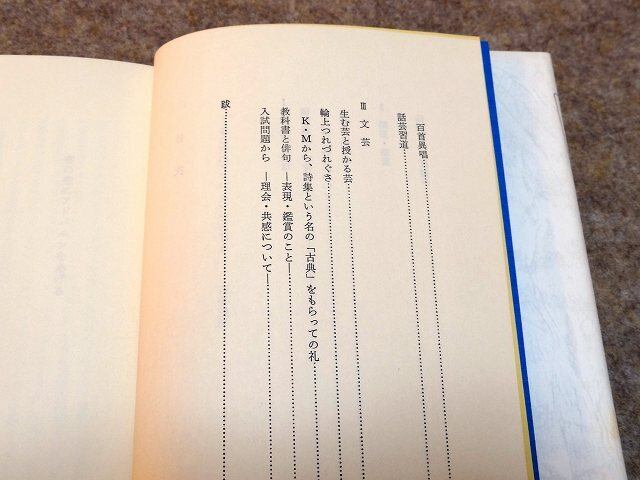 百首異唱
話芸習道
Ⅲ 文芸
生む芸と授かる芸
輪上つれづれぐさ
K・Mから、詩集という名の「古典」をもらっての礼
教科書と俳句 ―表現・鑑賞のこと―
入試問題から ―理会・共感について―
跋